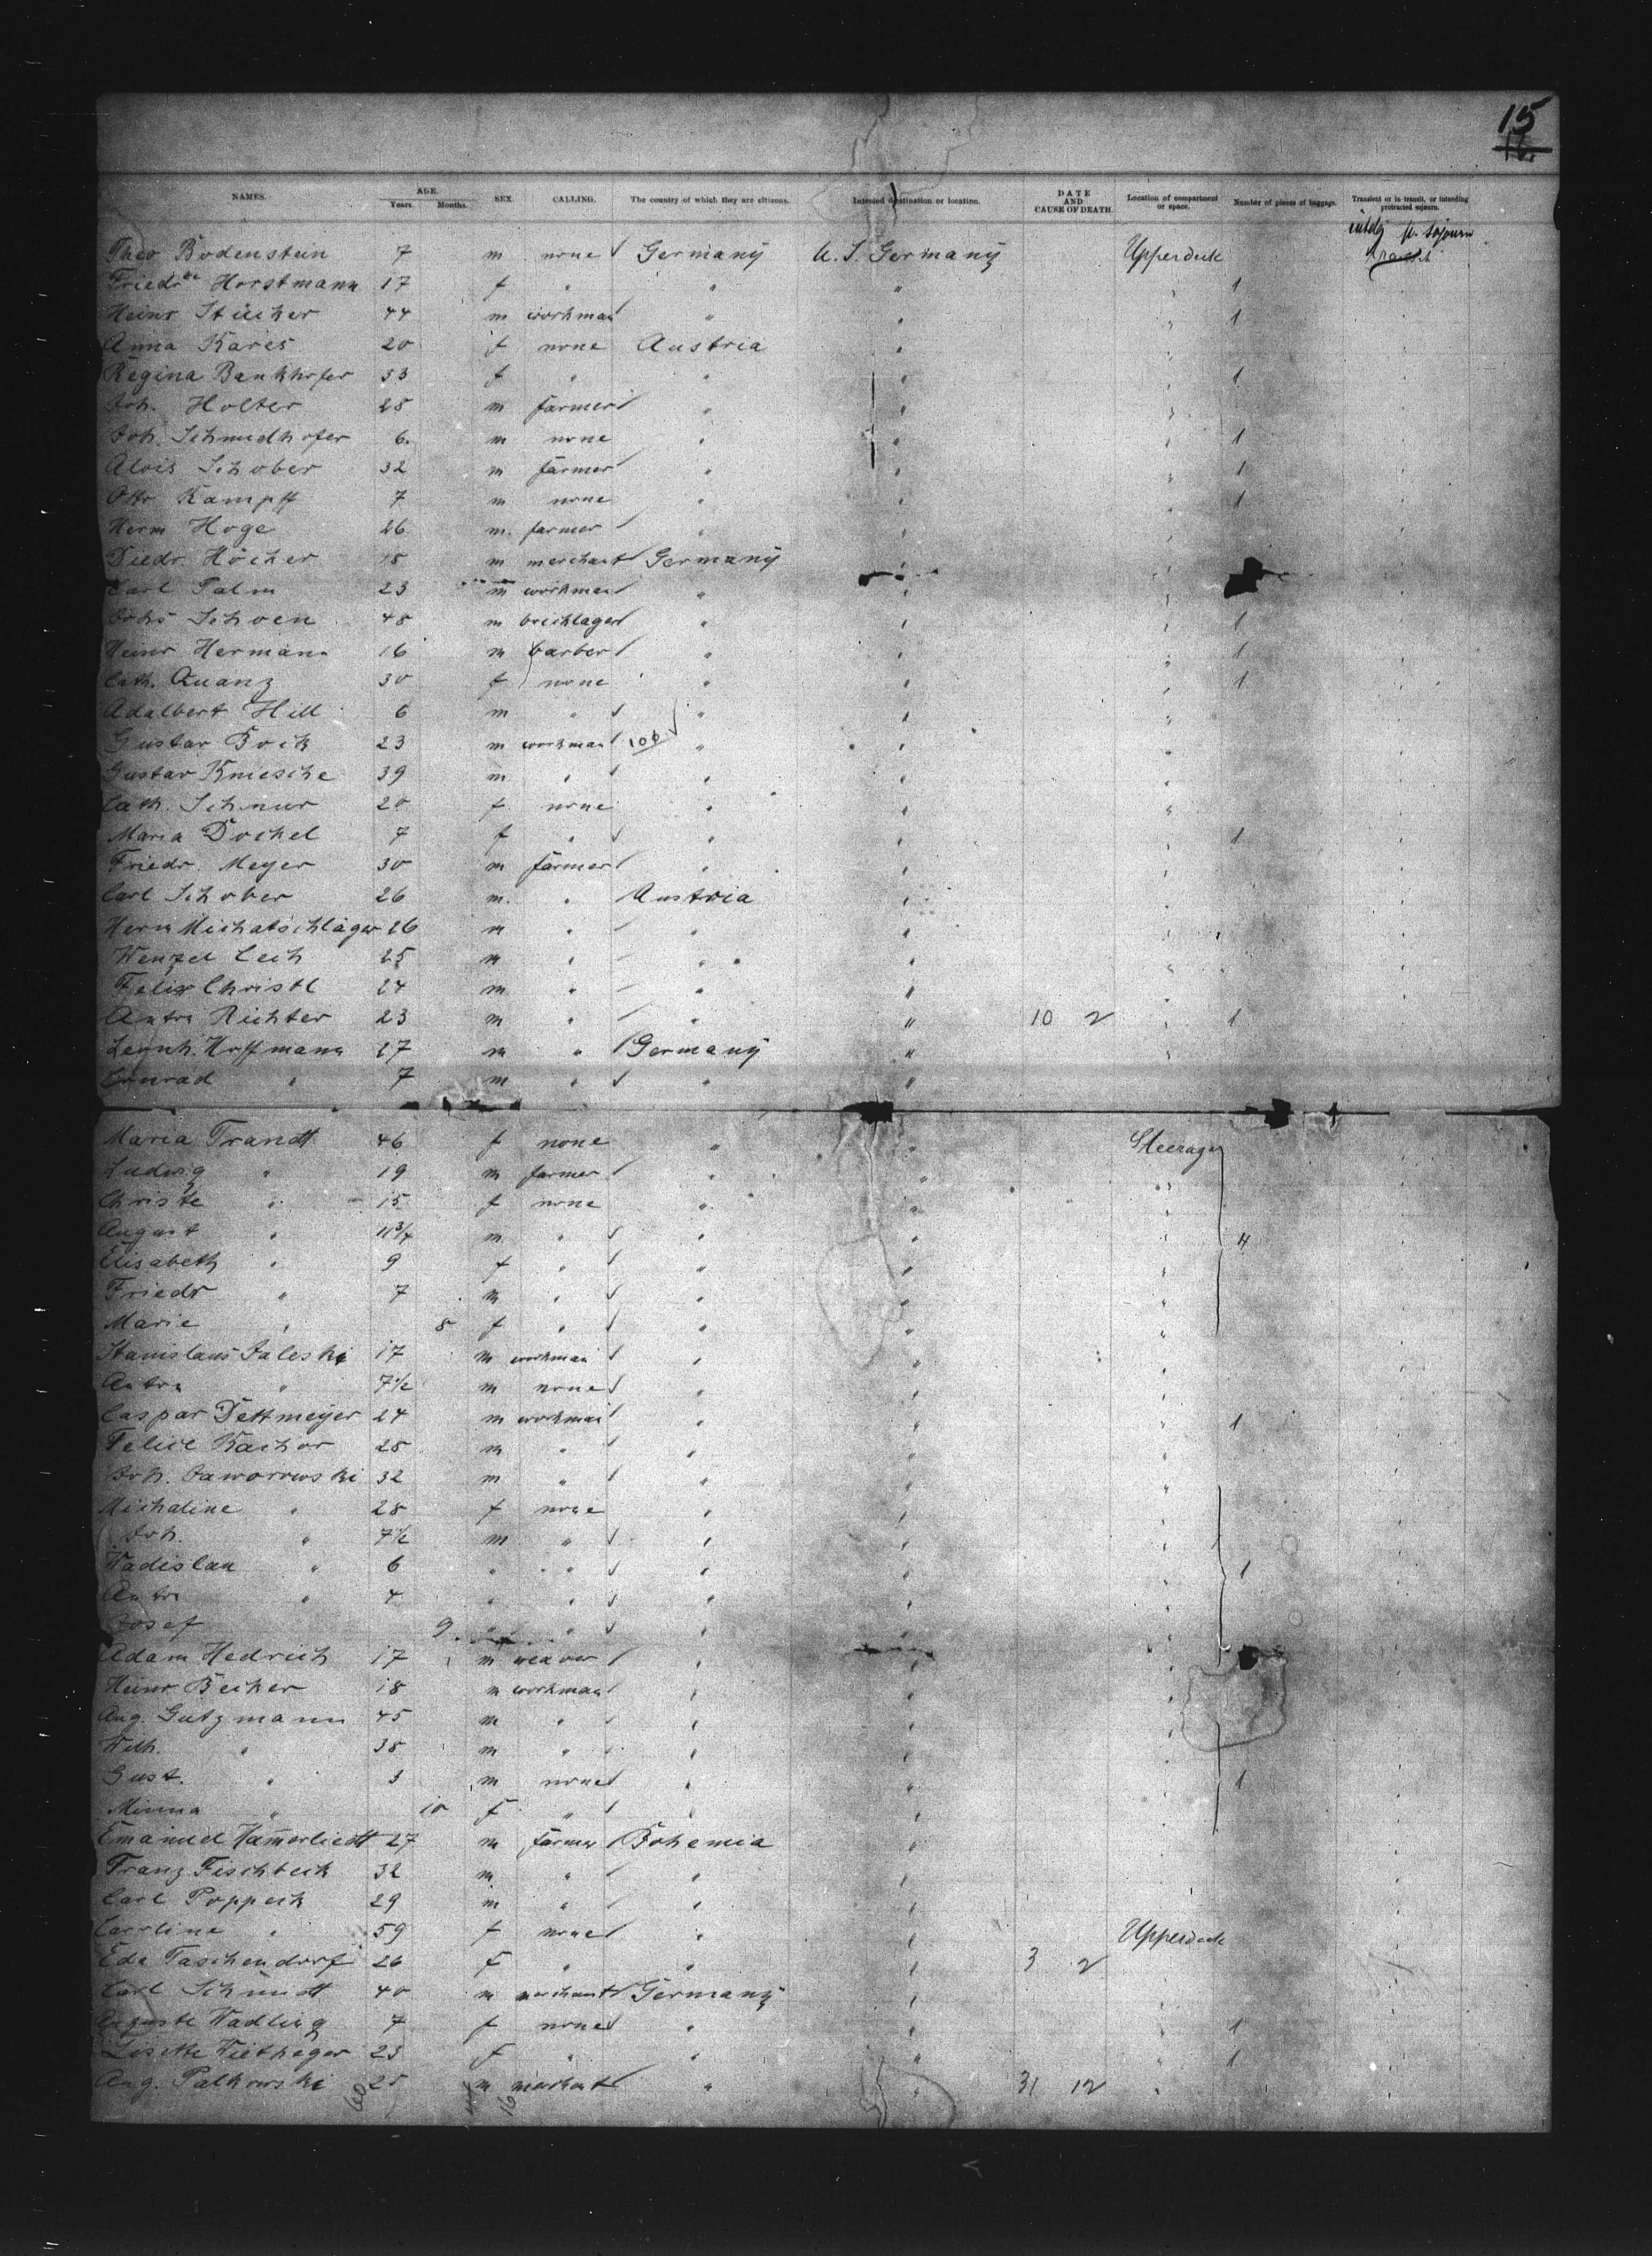 15
16.
NAMES. AGE. Years. Months. SEX. CALLING. The country of which they are citizens. Intended destination or location. DATE AND CAUSE OF DEATH. Location of compartment or space. Number of pieces of baggage. Transient or in transit, or intending protracted sojourn.
Theo Bodenstein 7 m none Germany U. S. Germany Upperdeck
Horstmann 17 f " " " 1
Heinr 44 m workman " " 1
Anna Kares 20 f none Austria "
Regina Bankhofer 53 f " " " 1
Joh. Holter 28 m farmer " "
Joh. Schmidhofer 6 m none " " 1
Alois Schober 32 m farmer " " 1
Otto Kampff 7 m none " " 1
Herm Hoge 26 m farmer " "
Diedr. Höcker 18 m merchant Germany "
Carl Palm 23 m workman " "
Johs Schoen 48 m " " 1
Heinr Hermann 16 m barber " " 1
Cath. Quanz 30 f none " " 1
Adalbert Hill 6 m " " "
Gustav Bock 23 m workman " "
Gustav Kniesche 39 m " " "
Cath. Schnur 20 f none " "
Maria Dockel 7 f " " " 1
Friedr. Meyer 30 m farmer " "
Carl Schober 26 m " Austria "
Herm Michatschläger 26 m " " "
Wenzel Cech 25 m " " "
Felix Christl 24 m " " "
Anton Richter 23 m " " " 10 2 1
Leonh. Hoffmann 27 m " Germany "
Conrad " 7 m " " "
Maria Trandt 46 f none " " Steerage
Ludwig " 19 m farmer " "
Christe " 15 f none " "
August " 11 3/4 m " " " 4
Elisabeth " 9 f " " "
Friedr " 7 m " " "
Marie " 8 f " " "
Stanislaus Jaleski 17 m workman " "
Anton " 7 1/2 m none " "
Caspar Dettmeyer 24 m workman " " 1
Felice Kachor 28 m " " "
Joh. Jaworowski 32 m " " "
Michaline " 28 f none " "
Joh. " 7 1/2 m " " "
Wadislau " 6 " " " " 1
Anton " 4 " " " "
Josef 9 " " " "
Adam Hedrich 17 m weaver " "
Heinr Becker 18 m workman " "
Aug. Gutzmann 45 m " " "
Wilh. " 38 m " " "
Gust. " 3 m none " " 1
Minna " 10 f " " "
Emanuel 27 m farmer Bohemia "
Franz Fischbeck 32 m " " "
Carl Poppeck 29 m " " "
Caroline " 59 f none " " Upperdeck
Eda Taschendorf 26 f " " " 3 2
Carl Schmidt 40 m merchant Germany "
Auguste Wadling 7 f none " " 1
Lisette Wietheger 23 f " " " 1
Aug. Palkowski 25 m merchant " " 31 12